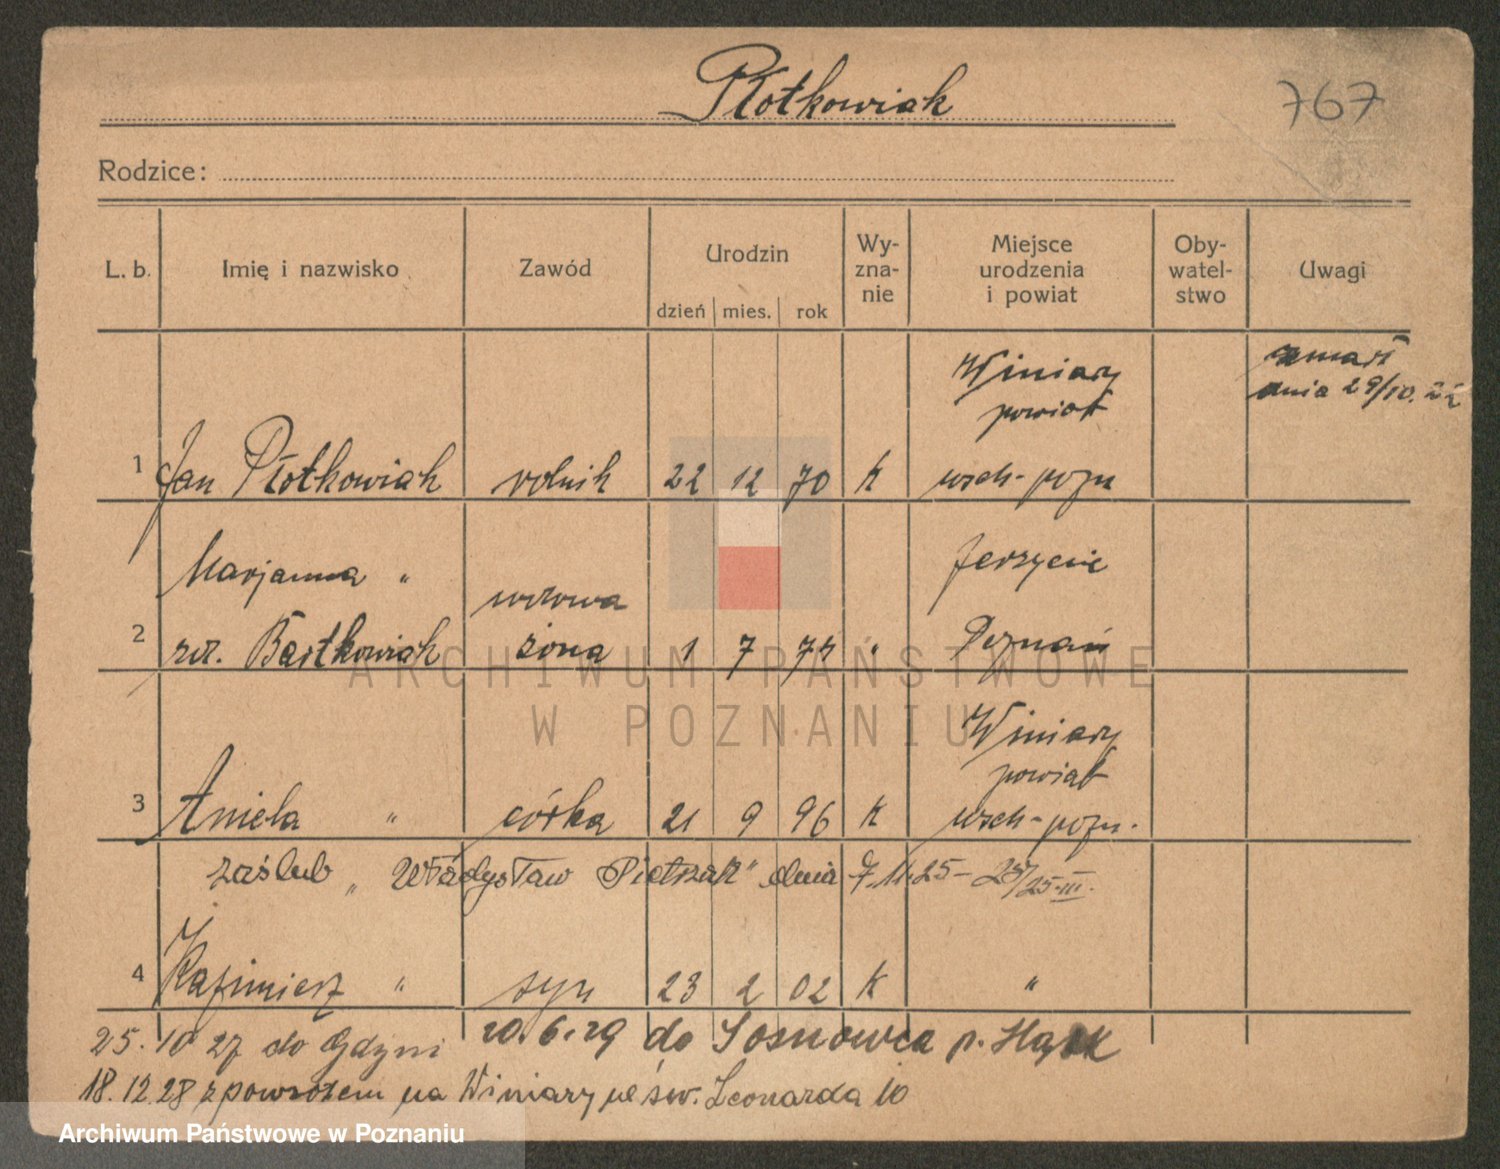 Płotkowiak
767
Rodzice:
L. b. Imię i nazwisko Zawód Urodzin dzień mies. rok Wy- zna- nie Miejsce urodzenia i powiat Oby- watel- stwo Uwagi
1 Jan Płotkowiak rolnik 22 12 70 k Winiary powiat wsch-pozn zmarł dnia 29/10. 22
Marjanna "
2 ur. Bartkowiak wdowa żona 1 7 74 " Jerzyce Poznań
3 Aniela " córka 21 9 96 k Winiary powiat wsch-pozn.
zaślub „Władysław Pietrzak" dnia 7.11.25 -
4 Kazimierz " syn 23 2 02 k "
25.10 27 do Gdyni 20.6.29 do Sosnowca p.
18.12.28 z powrotem na Winiary ul św. Leonarda 10
ARCHIWUM PAŃSTWOWE
W POZNANIU
Archiwum Państwowe w Poznaniu